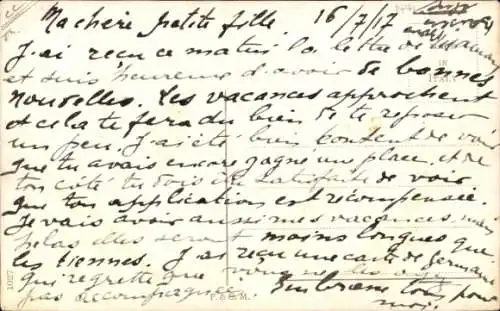 Ma chère petite fille. 16/7/17
J'ai reçu ce matin la lettre de Maman
et suis heureuse d'avoir de bonnes
nouvelles. Les vacances approchent
et cela te fera du bien de te reposer
un peu. J'ai été bien content de voir
que tu avais encore gagné une place, et de
ton côté tu dois être satisfaite de voir
que ton application est récompensée.
Je vais avoir aussi mes vacances, mais
hélas elles seront moins longues que
les tiennes. J'ai reçu une carte de Germaine
qui regrette que vous ne les ayez
pas accompagnées. Embrasse tous pour
moi.
1027
P. & B. M.